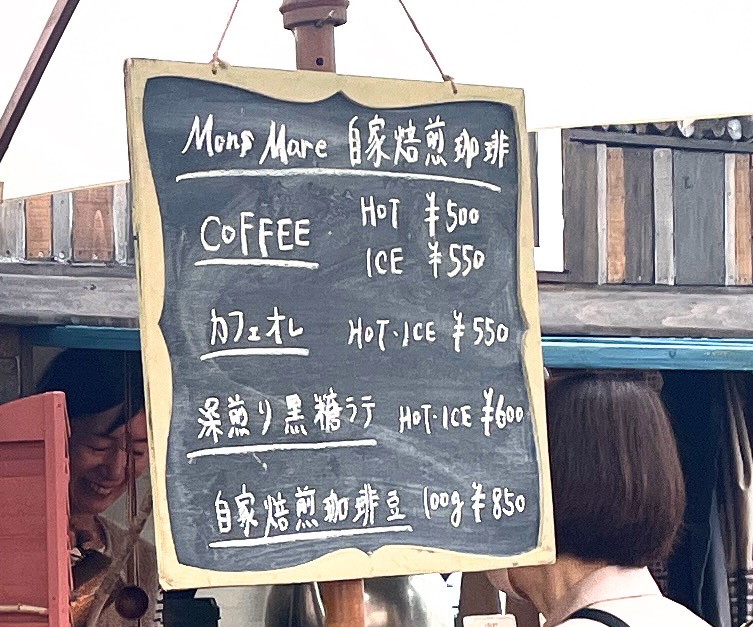 Mons Mare 自家焙煎珈琲
COFFEE HOT ¥500
ICE ¥550
カフェオレ HOT・ICE ¥550
深煎り黒糖ラテ HOT・ICE ¥600
自家焙煎珈琲豆 100g ¥850